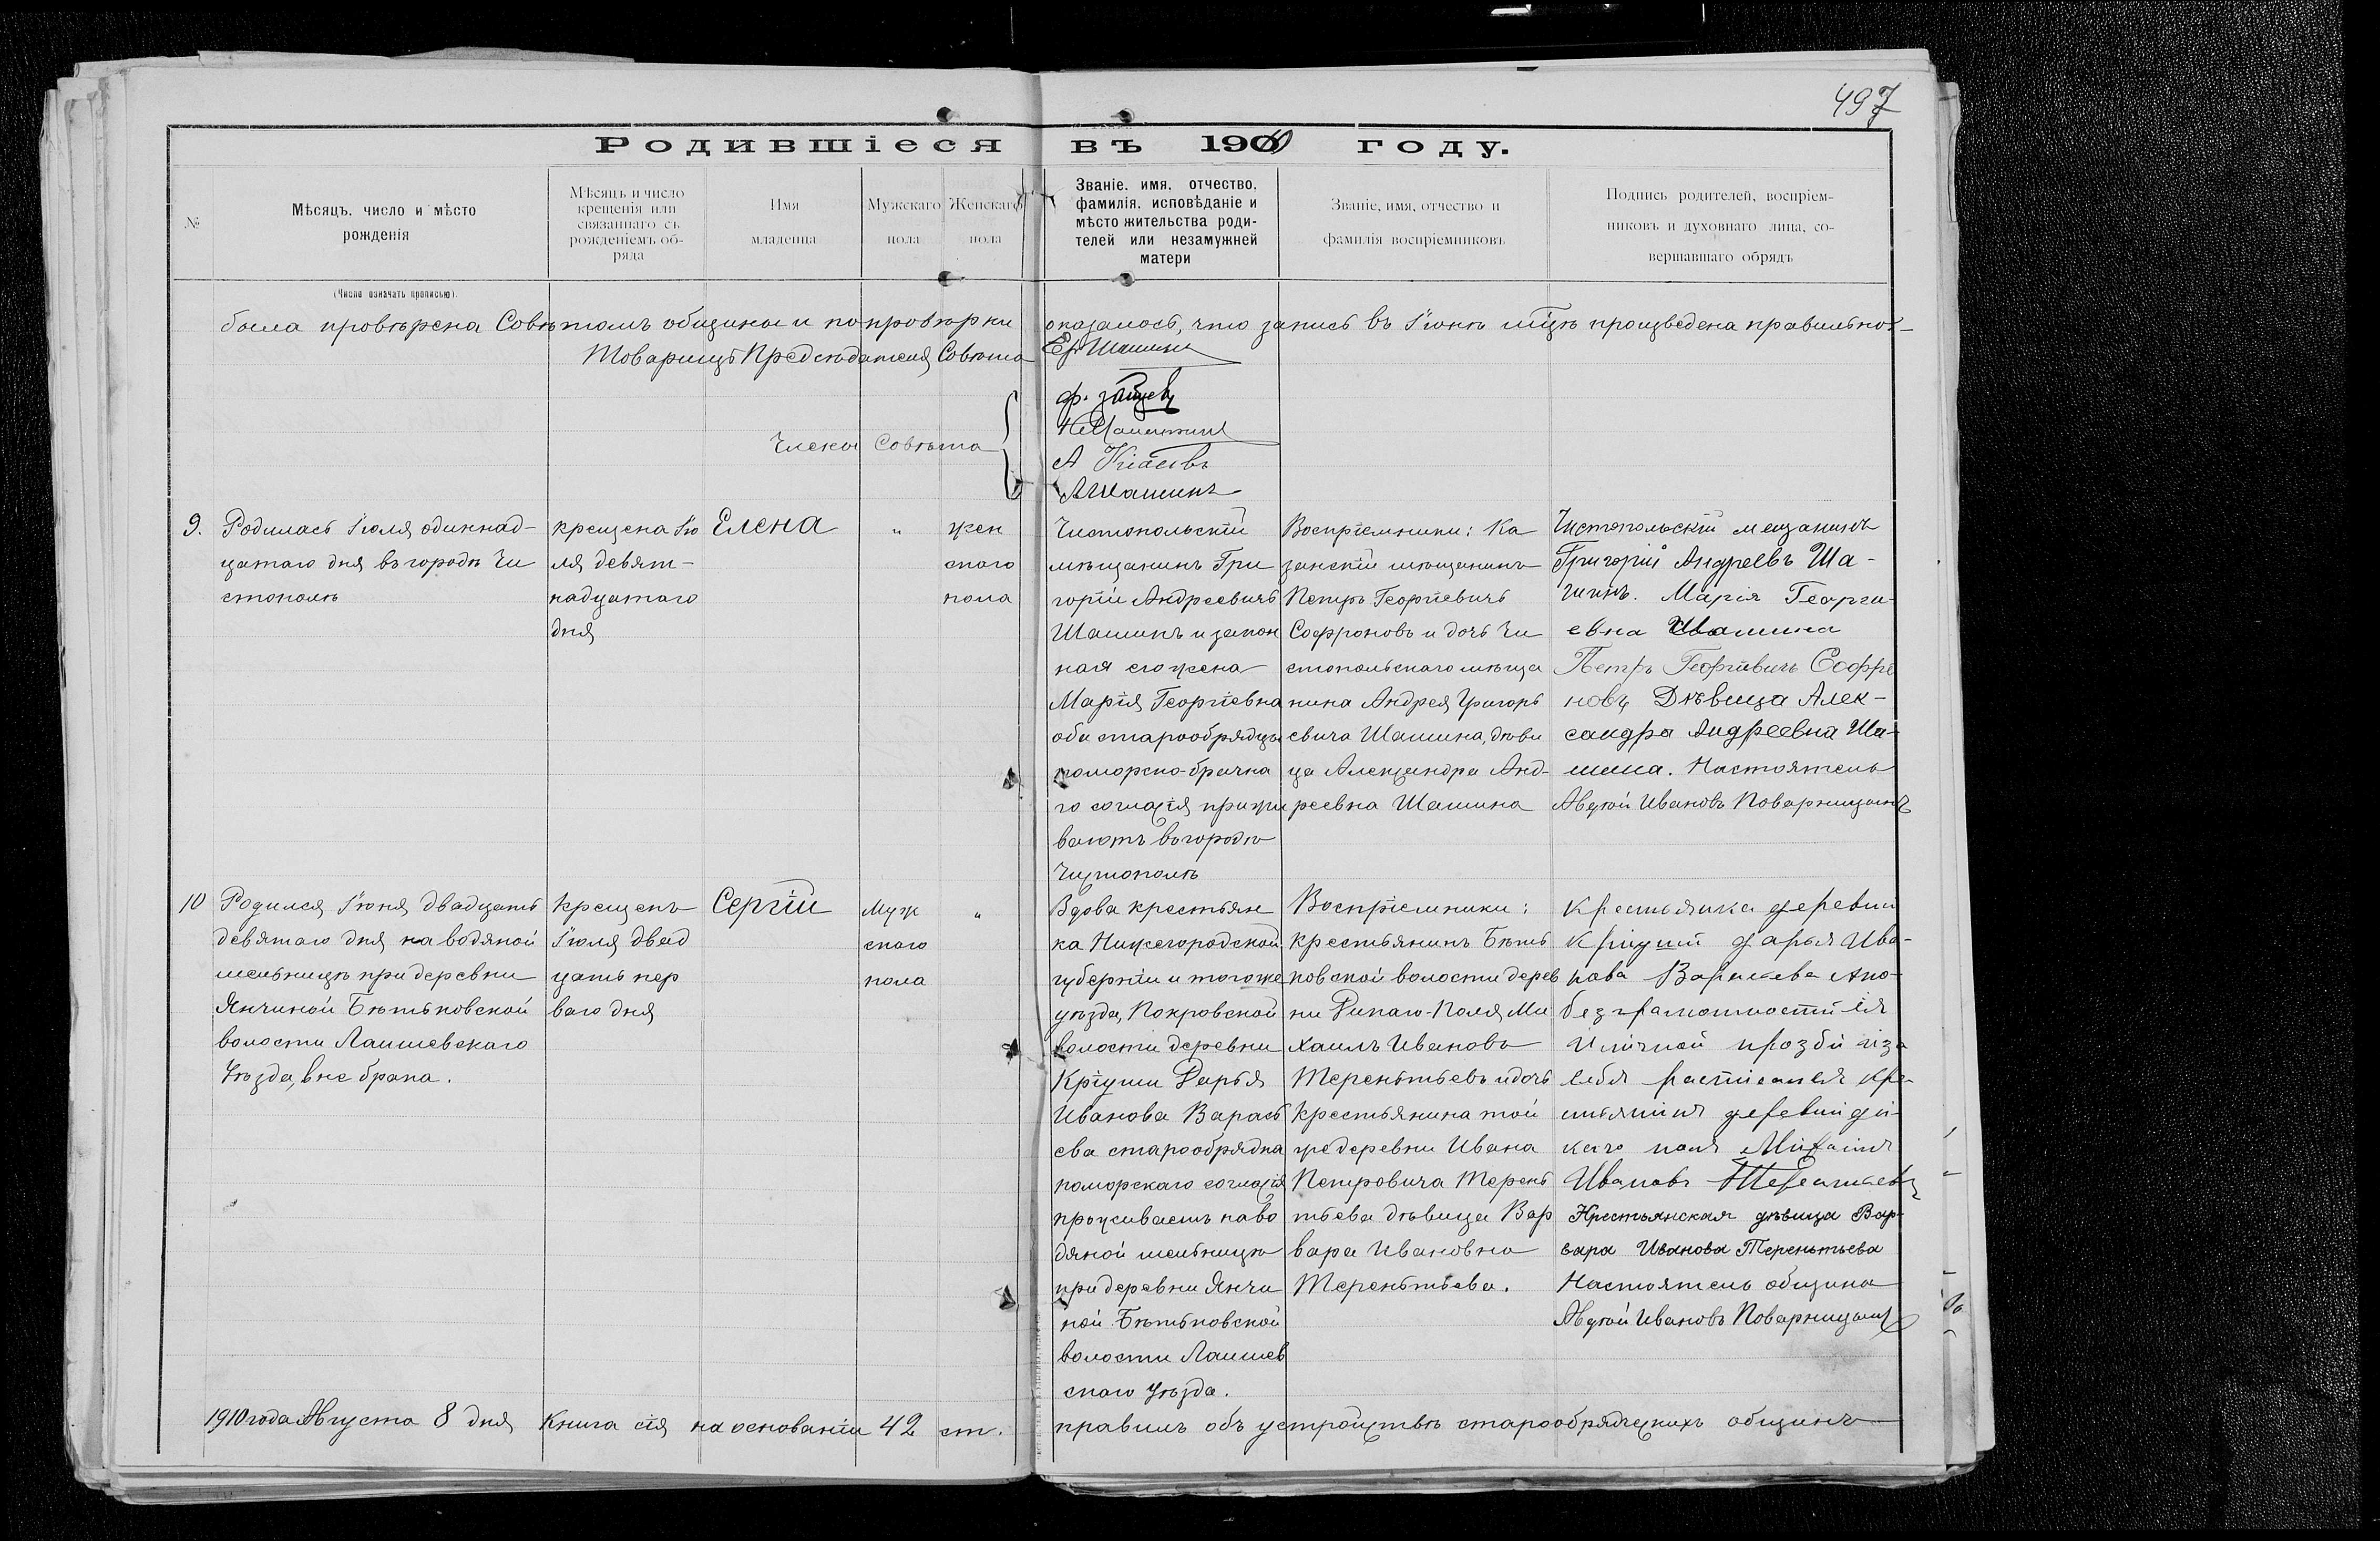 497
Родившіеся въ 1910 году.
№
Мѣсяцъ, число и мѣсто
рожденія
Мѣсяцъ и число
крещенія или
связаннаго съ
рожденіемъ об-
ряда
Имя
младенца
Мужскаго
пола
Женскаго
пола
Званіе, имя, отчество,
фамилія, исповѣданіе и
мѣсто жительства роди-
телей или незамужней
матери
Званіе, имя, отчество и
фамилія воспріемниковъ
Подпись родителей, воспріем-
никовъ и духовнаго лица, со-
вершавшаго обрядъ
(Число означать прописью).
была провѣрена Совѣтомъ общины и по провѣрки оказалось, что запись въ Іюнѣ мцѣ произведена правильно
Товарищъ Предсѣдателя Совѣта Ер Шашин
Члены Совѣта
Ф. Зайцевъ
А Кіасовъ
А Шашинъ
9.
Родилась Іюля одиннад-
цатаго дня въ городѣ Чи
стополѣ
крещена Ію
ля девят-
надцатаго
дня
Елена
"
жен
скаго
пола
Чистопольскій
мѣщанинъ Гри
горій Андреевичъ
Шашинъ и закон
ная его жена
Марія Георгіевна
оба старообрядцы
поморско-брачна
го согласія прожи
ваютъ въ городѣ
Чистополѣ
Воспріемники: Ка
занскій мѣщанинъ
Петръ Георгіевичъ
Софроновъ и дочь Чи
стопольскаго мѣща
нина Андрея Григорь
евича Шашина, дѣви
ца Александра Анд-
реевна Шашина
Чистопольскій мещанинъ
Григорій Андреевъ Ша-
шинъ. Марія Георги-
евна Шашина
Петръ Георгіевичъ Софро
новъ Дѣвица Алек-
сандра Андреевна Ша-
шина. Настоятель
Авдѣй Ивановъ Поварницынъ
10
Родился Іюня двадцать
девятаго дня на водяной
мельницѣ при деревни
Янчиной Бѣтьковской
волости Лаишевскаго
Уѣзда, внѣ брака.
крещенъ
Іюля двад
цать пер
ваго дня
Сергій
Муж
скаго
пола
"
Вдова крестьян
ка Нижегородской
губерніи и тогоже
уѣзда, Покровской
волости деревни
Кріуши Дарья
Иванова Варась
ева старообрядка
поморскаго согласія
проживаетъ на во
дяной мельницѣ
при деревни Янчи
ной Бѣтьковской
волости Лаишев
скаго Уѣзда.
Воспріемники:
крестьянинъ Бѣть
ковской волости дерев
ни Дикаго-Поля Ми
хаилъ Ивановъ
Терентьевъ и дочь
крестьянина той
же деревни Ивана
Петровича Терень
тьева дѣвица Вар
вара Ивановна
Терентьева.
крестьянка деревни
Кріуши Дарья Ива-
нова Варасева Апо
безграмотности ея
и личной прозби из
себя росписался кре
стьянинъ деревни ди
каго поля Михаилъ
Ивановъ Терентьевъ
Крестьянская дѣвица Вар-
вара Иванова Терентьева
Настоятель общины
Авдѣй Ивановъ Поварницынъ
1910 года Августа 8 дня Книга сія на основаніи 42 ст. правилъ объ устройствѣ старообрядческихъ общинъ